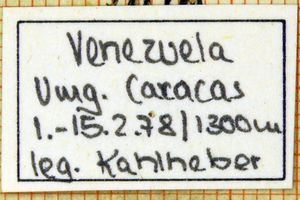 Venezuela
Umg. Caracas
1.-15.2.78/1300m
leg. Kahlheber